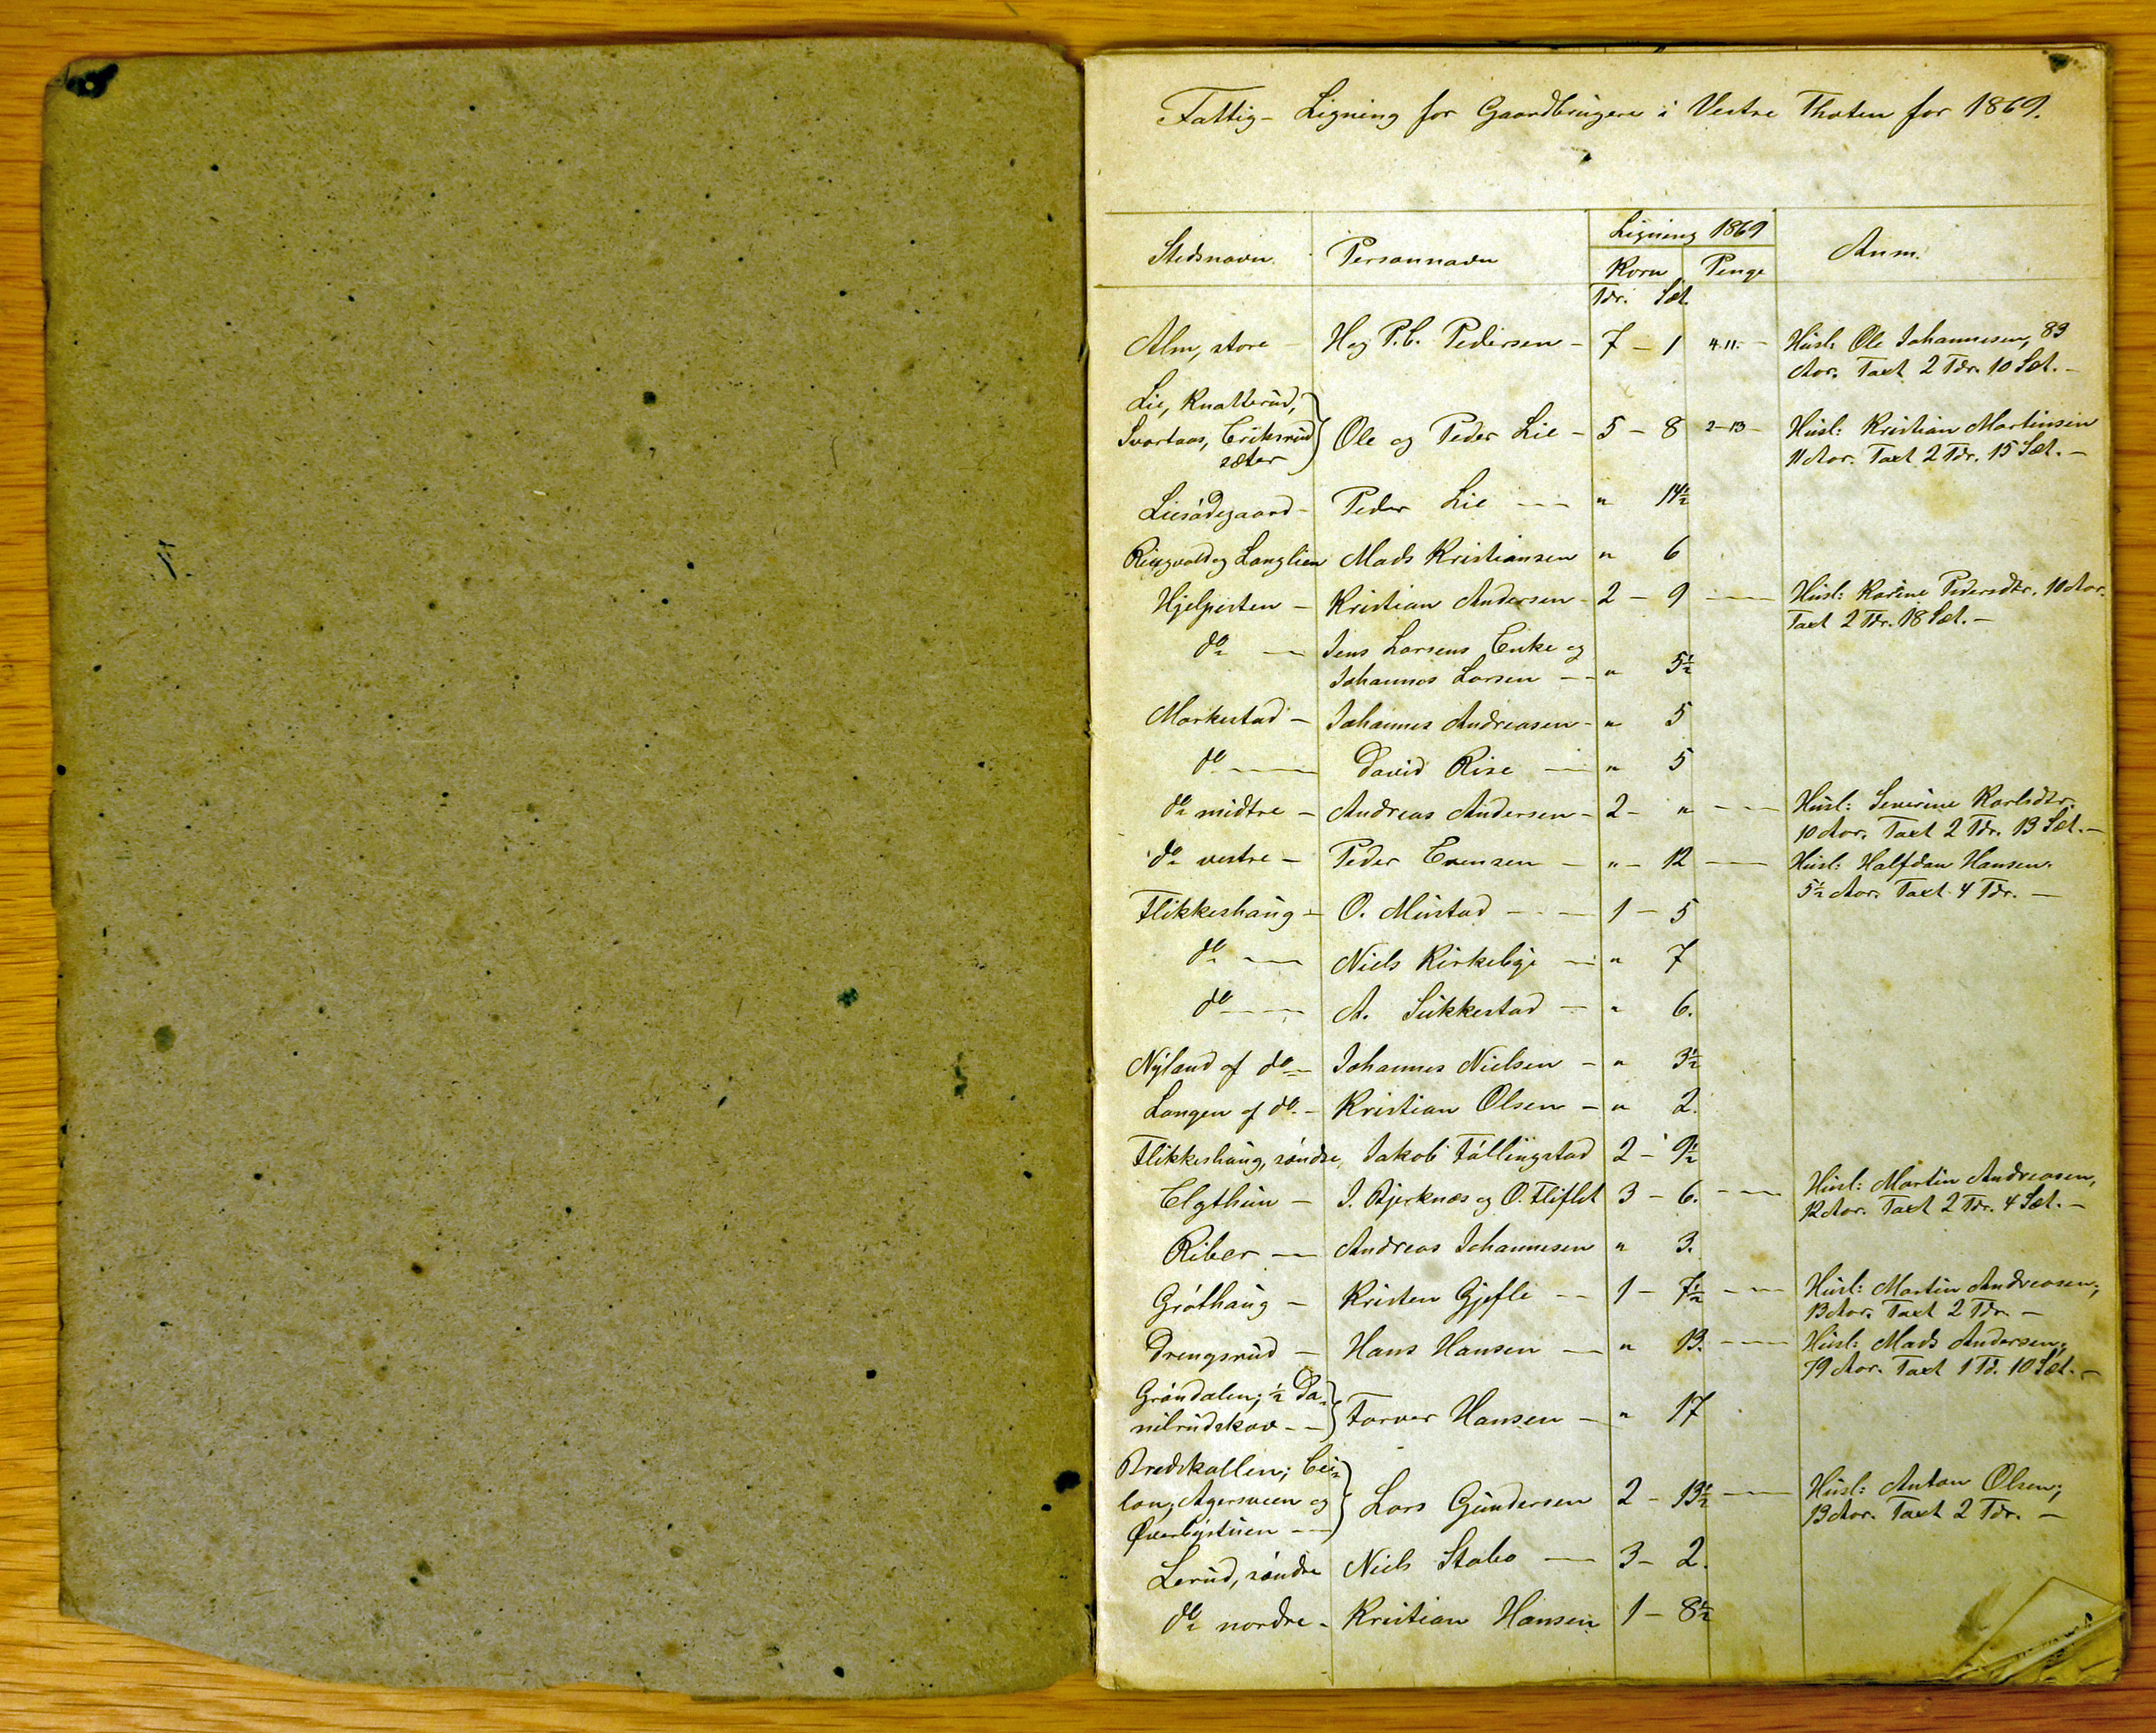 Fattig- Ligning for Gaardbrugere i Vestre Thoten for 1869.
Stedsnavn. Personnavn Ligning 1869 Anm.
Korn Penge
Tdr. Sæt.
Alm, store - H og P. C. Pedersen - 7 - 1 4.11. - Husl. Ole Johannesen, 89
Aar. Taxt 2 Tdr. 10 Sæt. -
Lie, Knatterud,
Svartaas, Eriksrud Ole og Peder Lie - 5 - 8 2-13- Husl: Kristian Martinsen
sæter 11 Aar. Taxt 2 Tdr. 15 Sæt. -
Liesødegaard - Peder Lie -- " 14½
Ringvold og Langlien Mads Kristiansen " 6
Hjelpesten - Kristian Andersen - 2 - 9 -- Husl: Karine Pedersdtr. 10 Aar.
Taxt 2 Tdr. 18 Sæt. -
do - Jens Larsens Enke og
Johannes Larsen -- " 5½
Markestad - Johannes Andreasen - " 5
do -- David Rise -- " 5
do midtre - Andreas Andersen - 2 - " -- Husl: Severine Karlsdtr.
10 Aar. Taxt 2 Tdr. 13 Sæt. -
do vestre - Peder Evensen - " - 12 -- Husl: Halfdan Hansen.
5½ Aar. Taxt 4 Tdr. -
Flikkeshaug - O. Mustad -- 1 - 5
do -- Niels Kirkebye - " 7
do -- A. Sukkestad - " 6.
Nyland af do - Johannes Nielsen - " 3½
Langen af do - Kristian Olsen - " 2.
Flikkeshaug, søndre, JakobFøllingstad 2 - 9½
Elgthun - J. Bjerknæs og O. Fliflet 3 - 6. -- Husl: Martin Andreasen,
12 Aar. Taxt 2 Tdr. 4 Sæt. -
Riber -- Andreas Johannesen " 3.
Grøthaug - Kristen Gjefle -- 1 - 7½ -- Husl: Martin Andreasen;
13 Aar. Taxt 2 Tdr. -
Drengsrud - Hans Hansen - " 13. -- Husl: Mads Andersen;
79 Aar. Taxt 1 Td. 10 Sæt. -
Grøndalen; ½ Da-
nilrudskov -- Farver Hansen - " 17
Bredskallen; Cei-
lon; Agersveen og Lars Gundersen 2 - 13½ -- Husl: Anton Olsen;
Øverbystuen -- 13 Aar. Taxt 2 Tdr. -
Lerud, søndre Niels Stabo -- 3 - 2.
do nordre - Kristian Hansen 1 - 8½